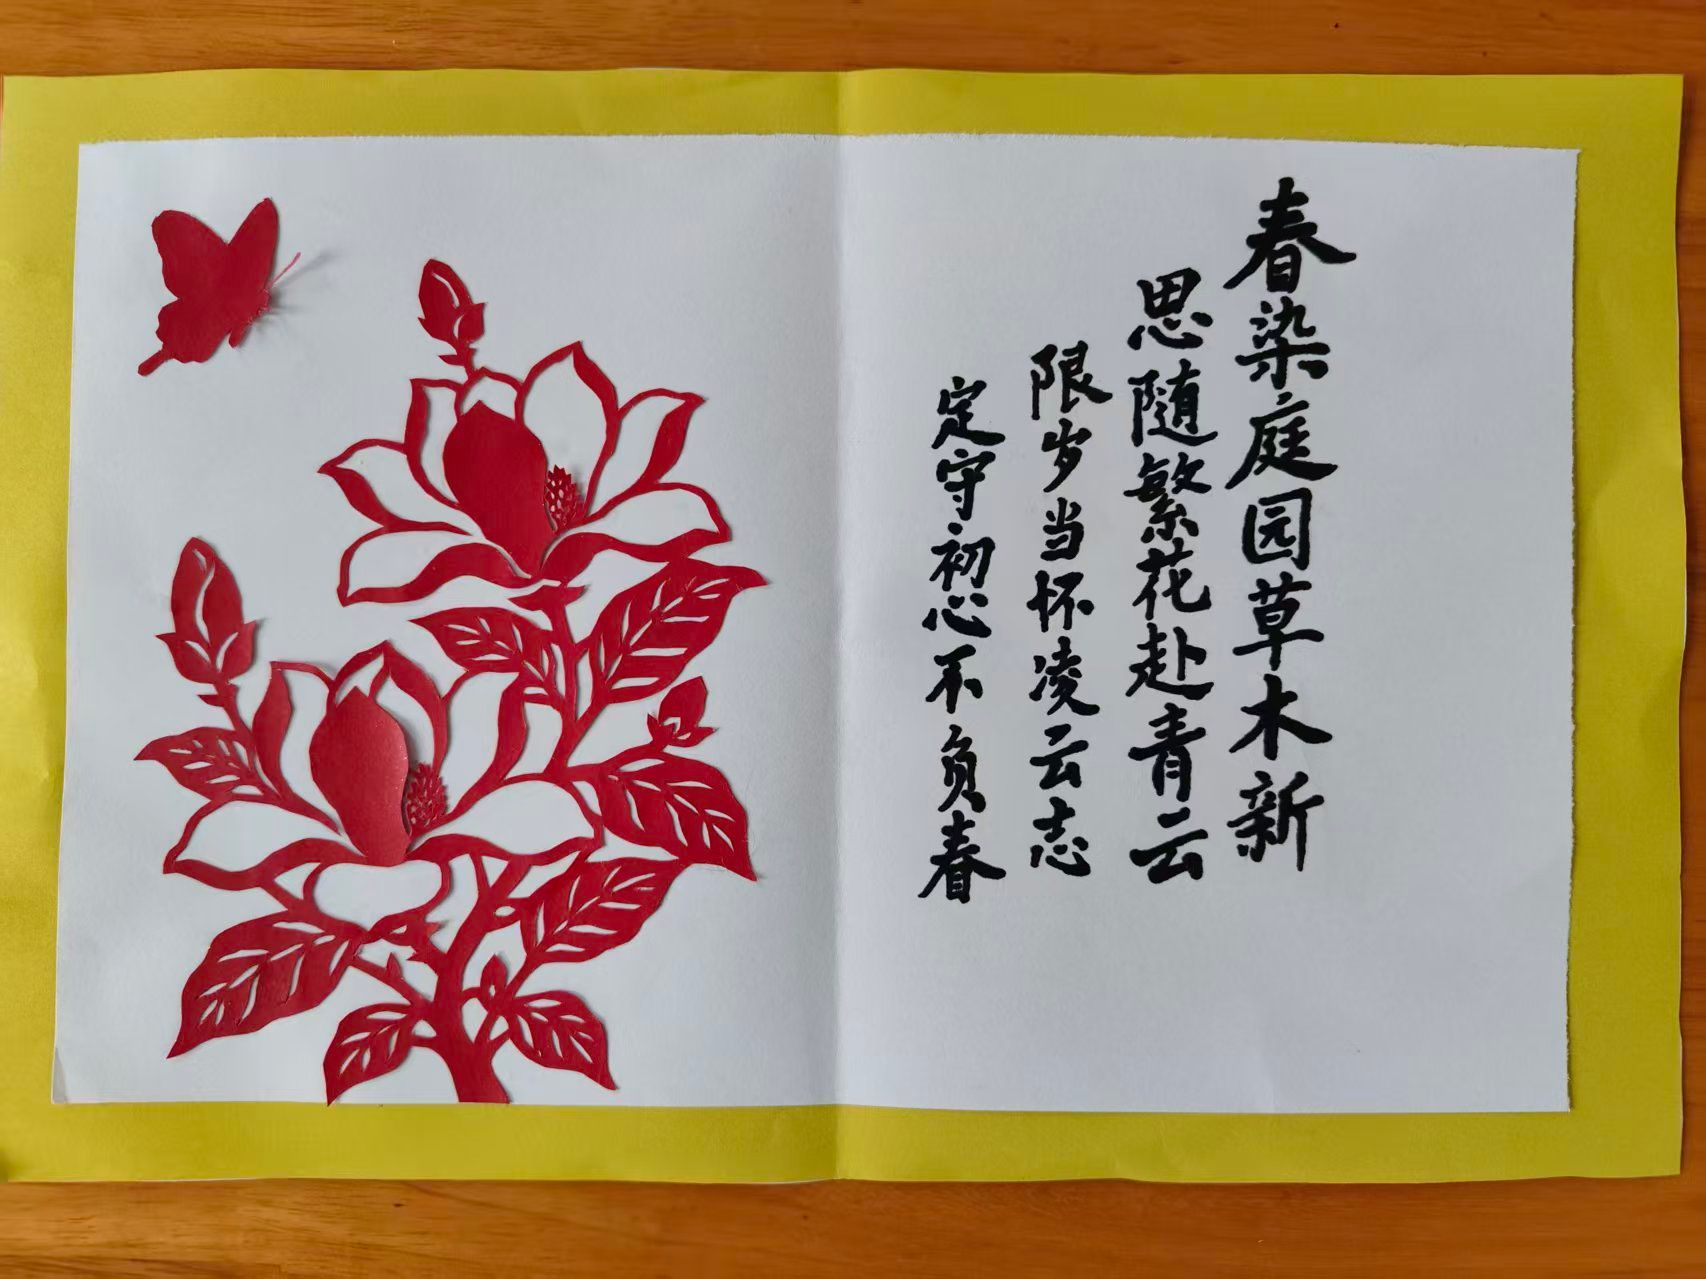 春染庭园草木新
思随繁花赴青云
限岁当怀凌云志
定守初心不负春